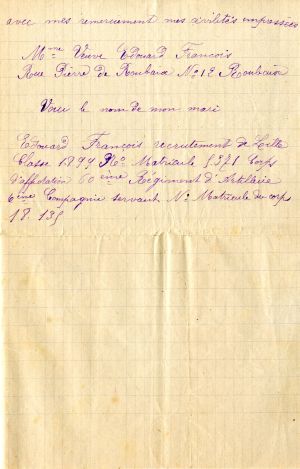 avec mes remerciement mes civilités empressées
Mme Veuve Edouard François
Rue Pierre de Roubaix No 12 Roubaix
Voici le nom de mon mari
Edouard François recrutement de Lille
Classe 1894 No Matricule 5371 Corps
d'affectation 60 ème Régiment d'Artillerie
6 ème Compagnie servant No Matricule du corps
18.135